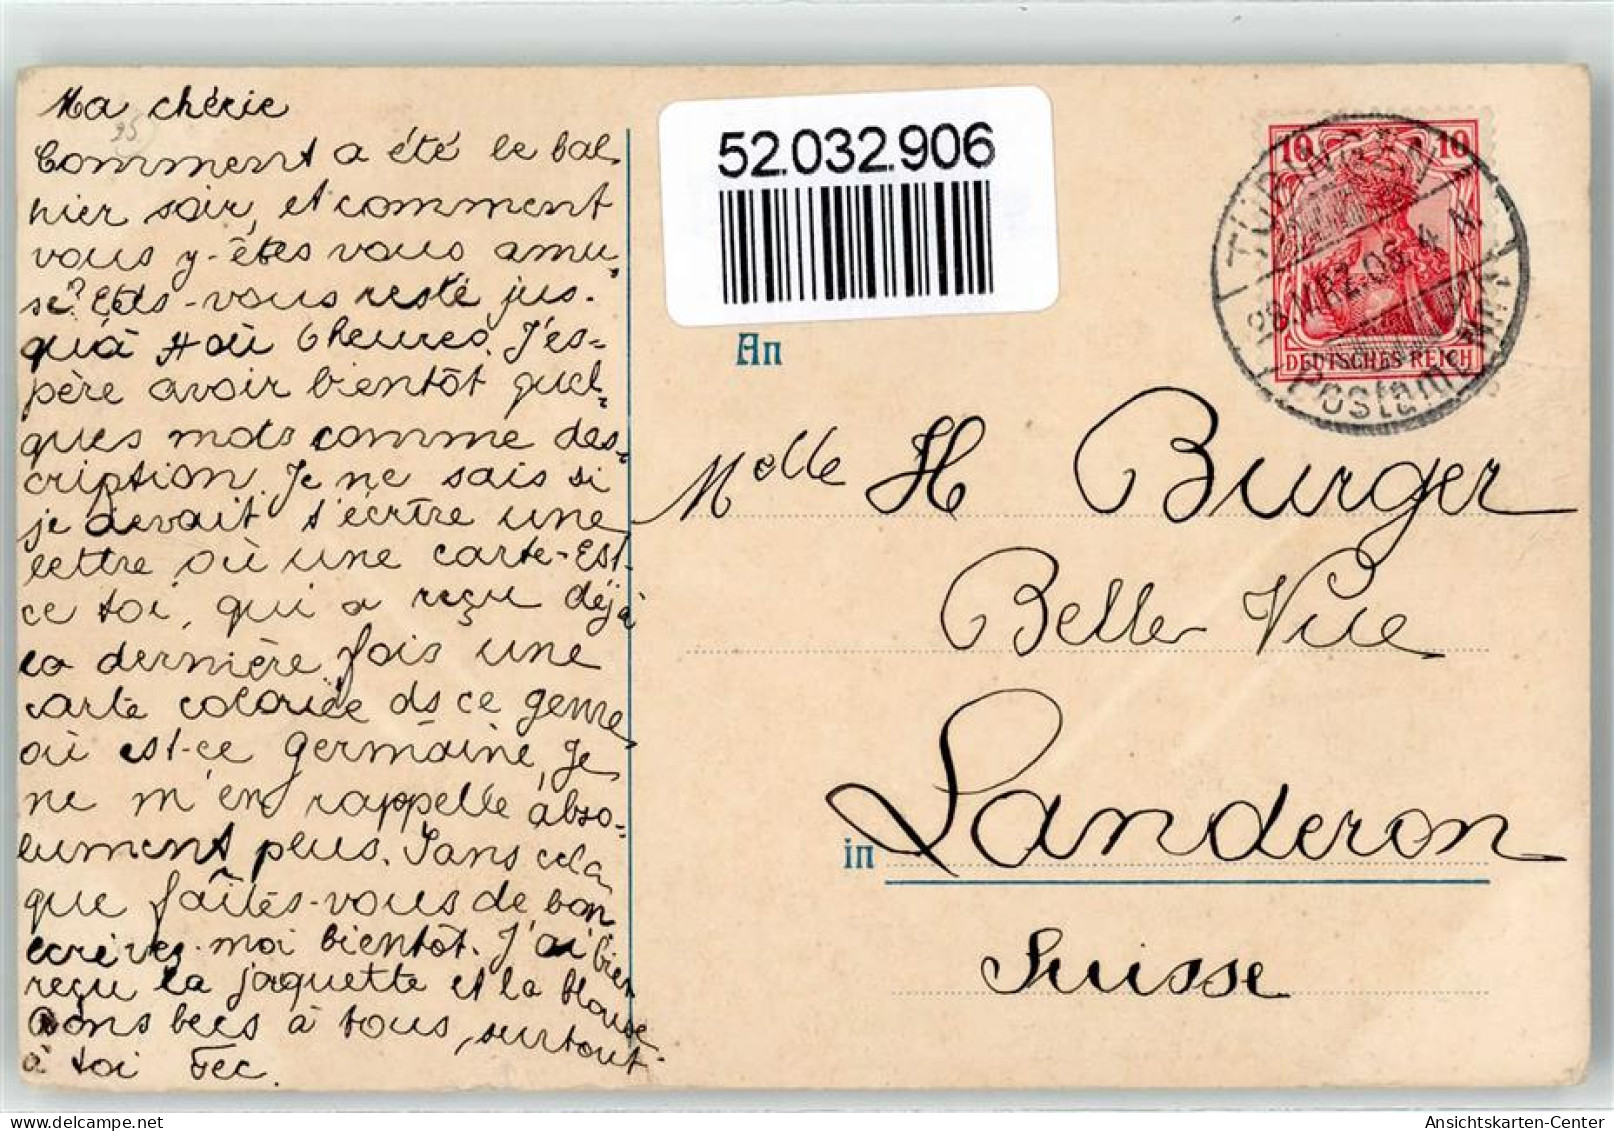 Ma chérie
Comment a été le bal
hier soir, et comment
vous y-êtes vous amu-
sé? Etes-vous resté jus-
qu'à 4 où 6 heures. J'es-
père avoir bientôt quel-
ques mots comme des-
cription. Je ne sais si
je devait t'écrire une
lettre où une carte-Est-
ce toi, qui a reçu déjà
la dernière fois une
carte coloriée ds ce genre
où est-ce Germaine, Je
ne m'en rappelle abso-
lument plus. Sans cela
que faîtes-vous de bon
écrivez-moi bientôt. J'ai bien
reçu la jaquette et la blouse
bons becs à tous, surtout
à toi
52.032.906
10 10
DEUTSCHES REICH
TÜBINGEN
MRZ.06. 4 N
Postamt Nr 1
An
Melle H Burger
Belle Vue
in Landeron
Suisse
Ansichtskarten-Center